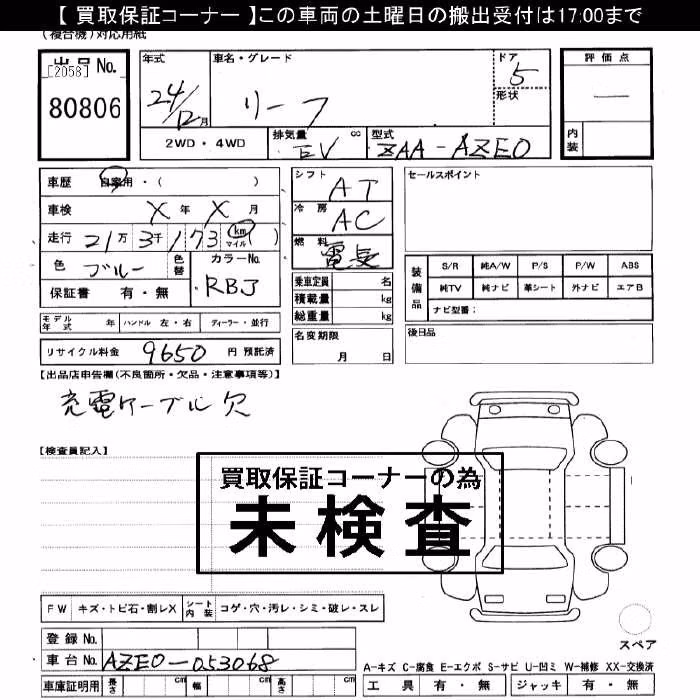 【 買取保証コーナー 】この車両の土曜日の搬出受付は17:00まで
(複合機)対応用紙
出品 No.
[2058]
80806
年式
24/12月
車名・グレード
リーフ
ドア
5
形状
評価点
—
内装
2WD・4WD
排気量 cc
EV
型式
ZAA-AZEO
車歴 自家用・( )
車検 X年 X月
走行 21万 3千 173 (km マイル)
色 ブルー
色替
カラーNo.
RBJ
保証書 有・無
モデル年式 年 ハンドル 左・右 ディーラー・並行
リサイクル料金 9650 円 預託済
シフト AT
冷房 AC
燃料 電気
乗車定員 名
積載量 kg
総重量 kg
名変期限
月 日
セールスポイント
装備品
S/R 純A/W P/S P/W ABS
純TV 純ナビ 革シート 外ナビ エアB
ナビ型番:
後日品
【出品店申告欄(不良箇所・欠品・注意事項等)】
充電ケーブル欠
【検査員記入】
買取保証コーナーの為
未検査
FW キズ・トビ石・割レX シート内装 コゲ・穴・汚レ・シミ・破レ・スレ
登録 No.
車台 No. AZEO-053068
車庫証明用 長さ cm 幅 cm 高さ cm
スペア
A-キズ C-腐食 E-エクボ S-サビ U-凹ミ W-補修 XX-交換済
工具 有・無 ジャッキ 有・無